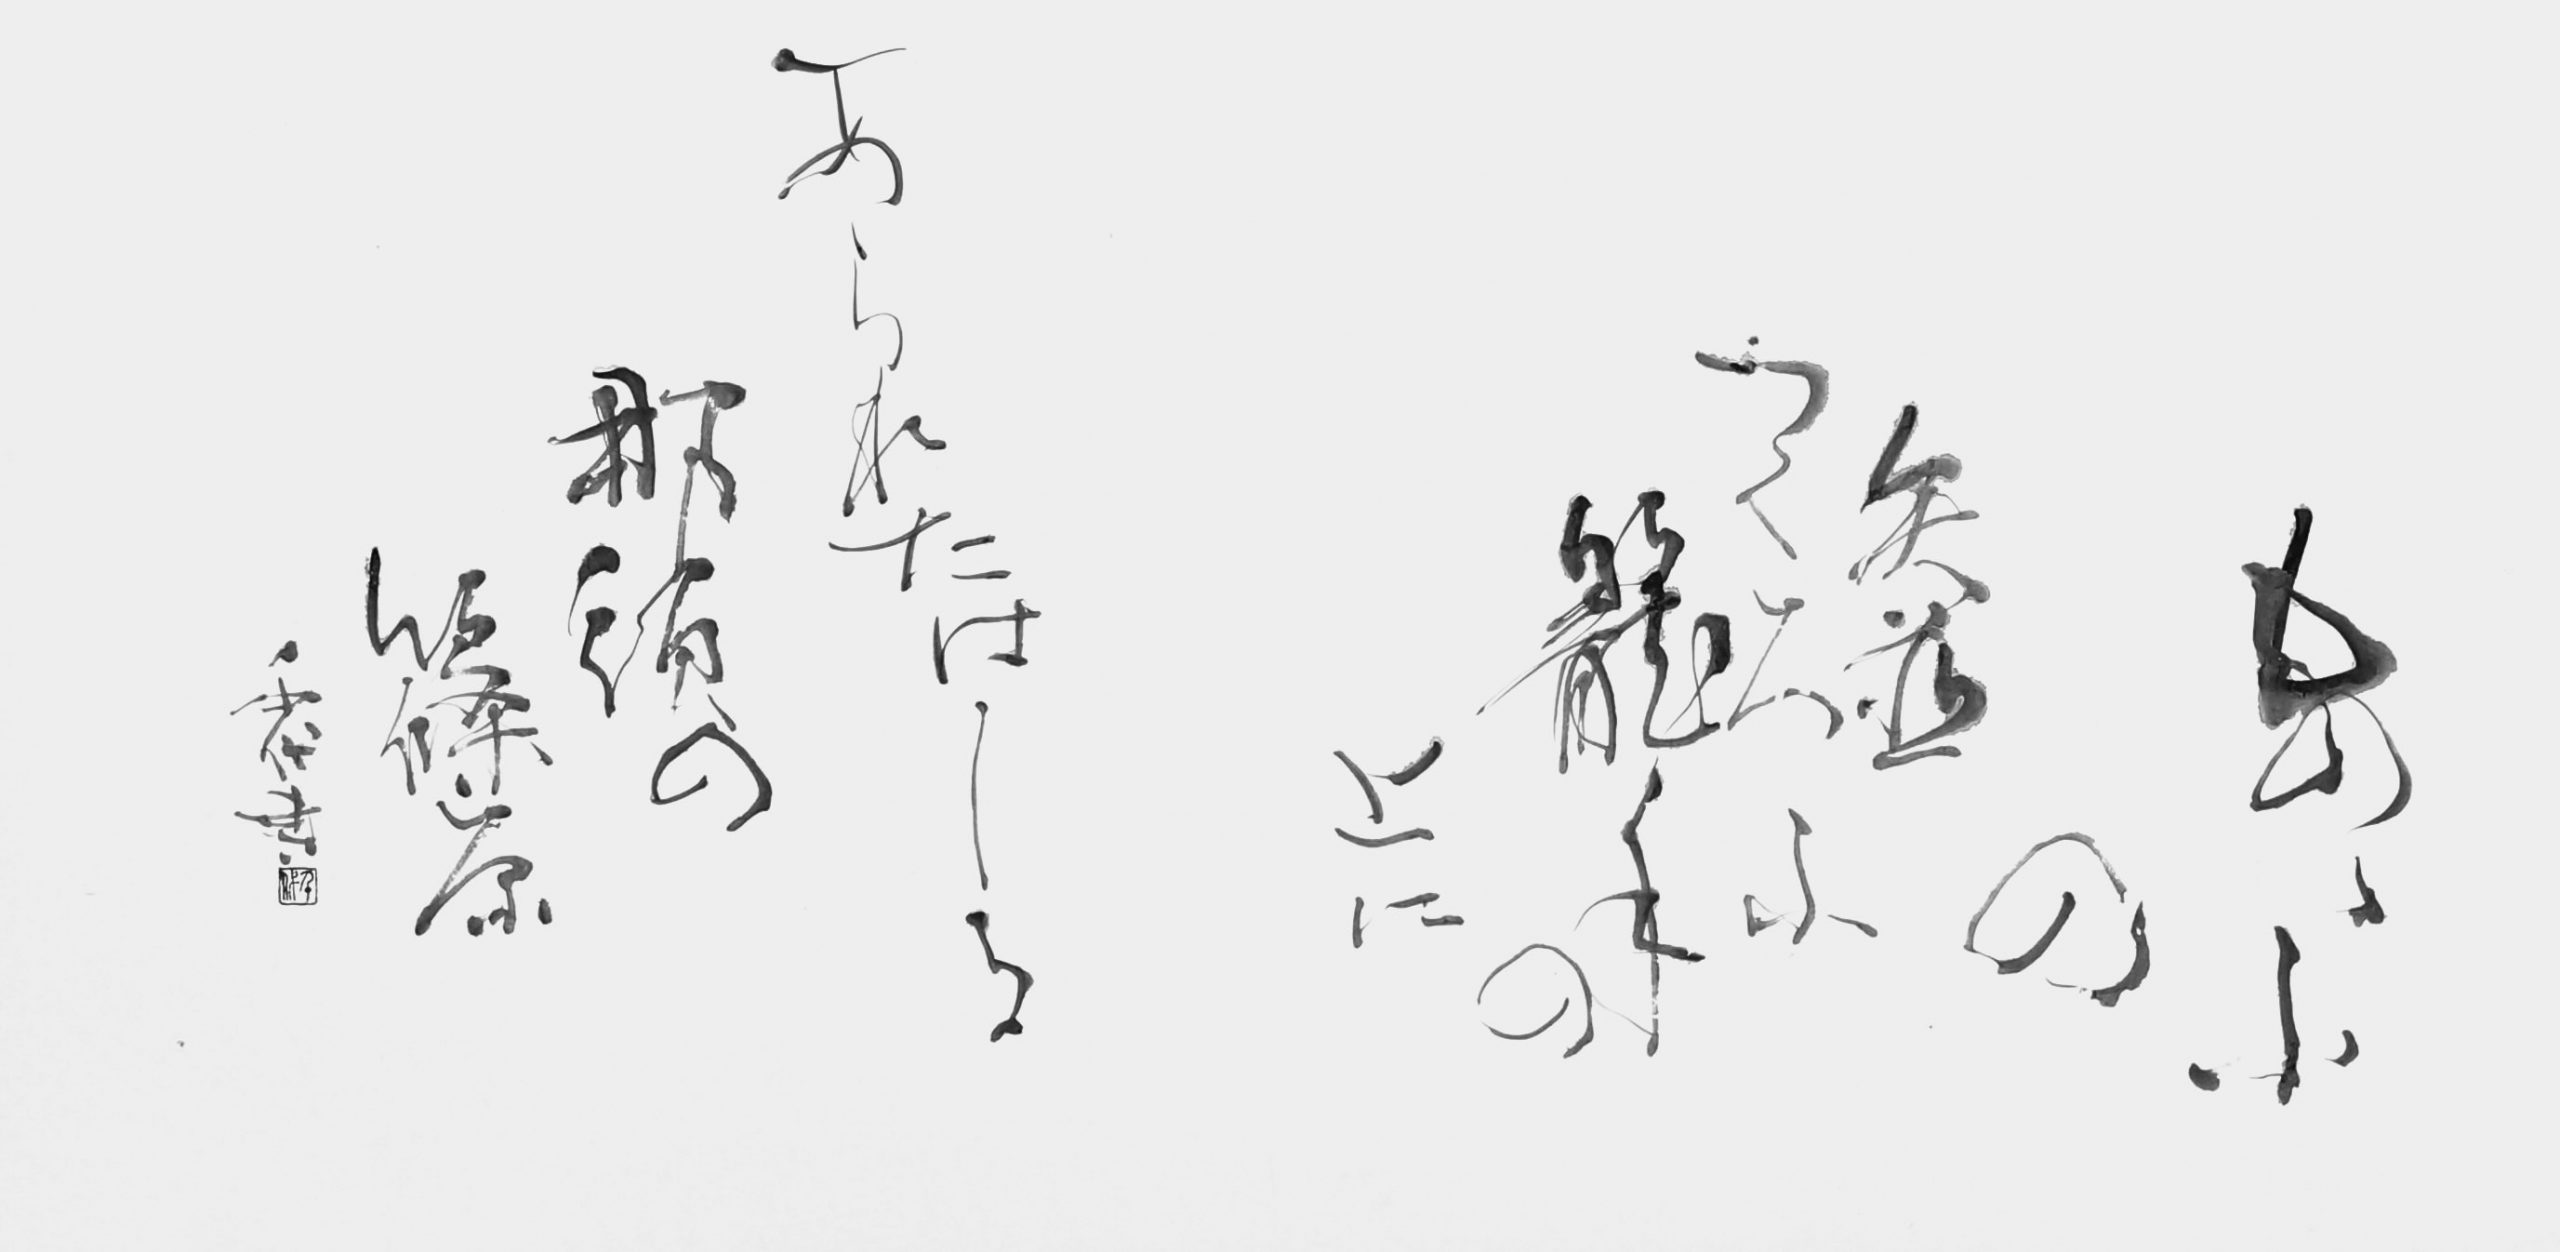 ものゝふ
の
矢並
つくろふ
籠手の
上に
あられたはしる
那須の
篠原